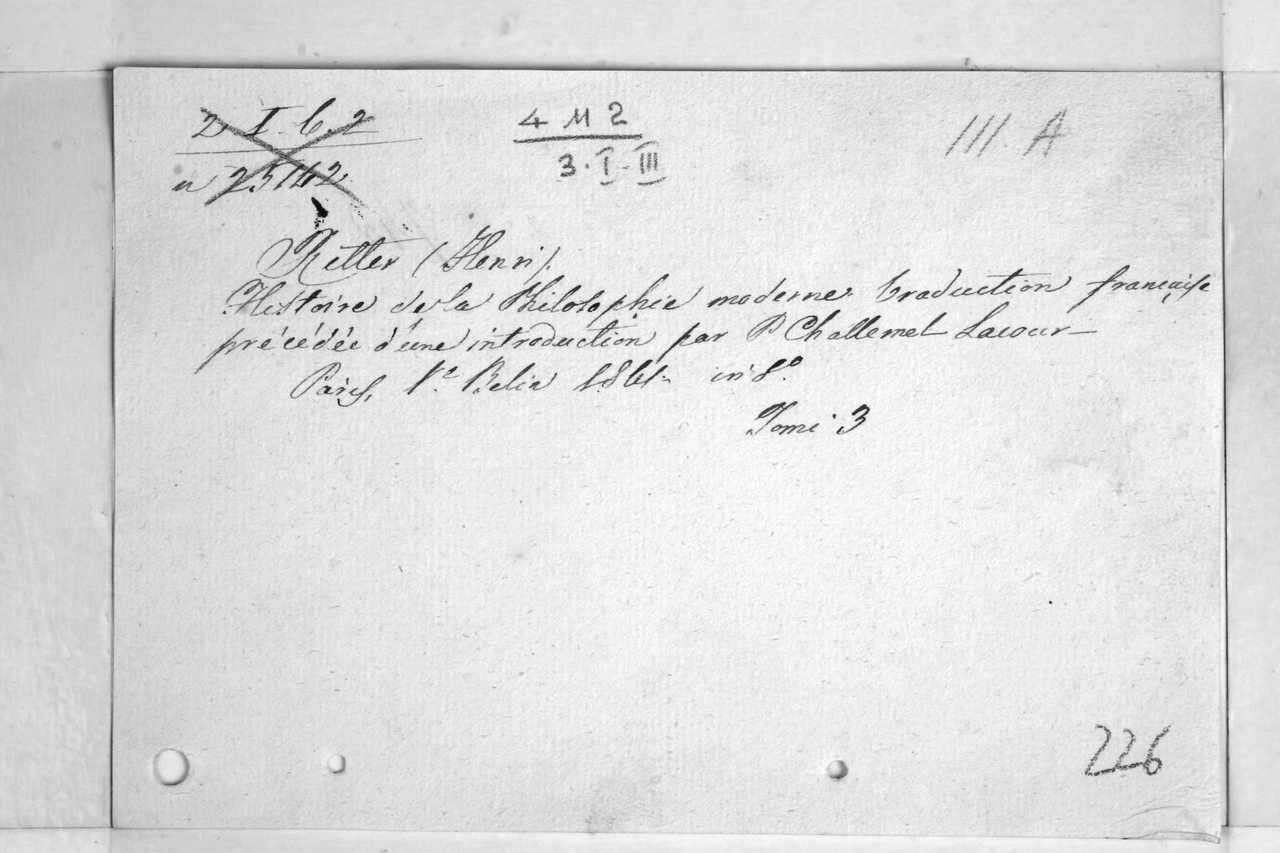 2. I. 6. 2
n 25142
4 M 2
3. I - III
III. A
Ritter (Henri).
Histoire de la Philosophie moderne traduction française
précédée d'une introduction par P Challemel Lacour—
Paris, Ve Belin 1861- in 8o
Tome 3
226